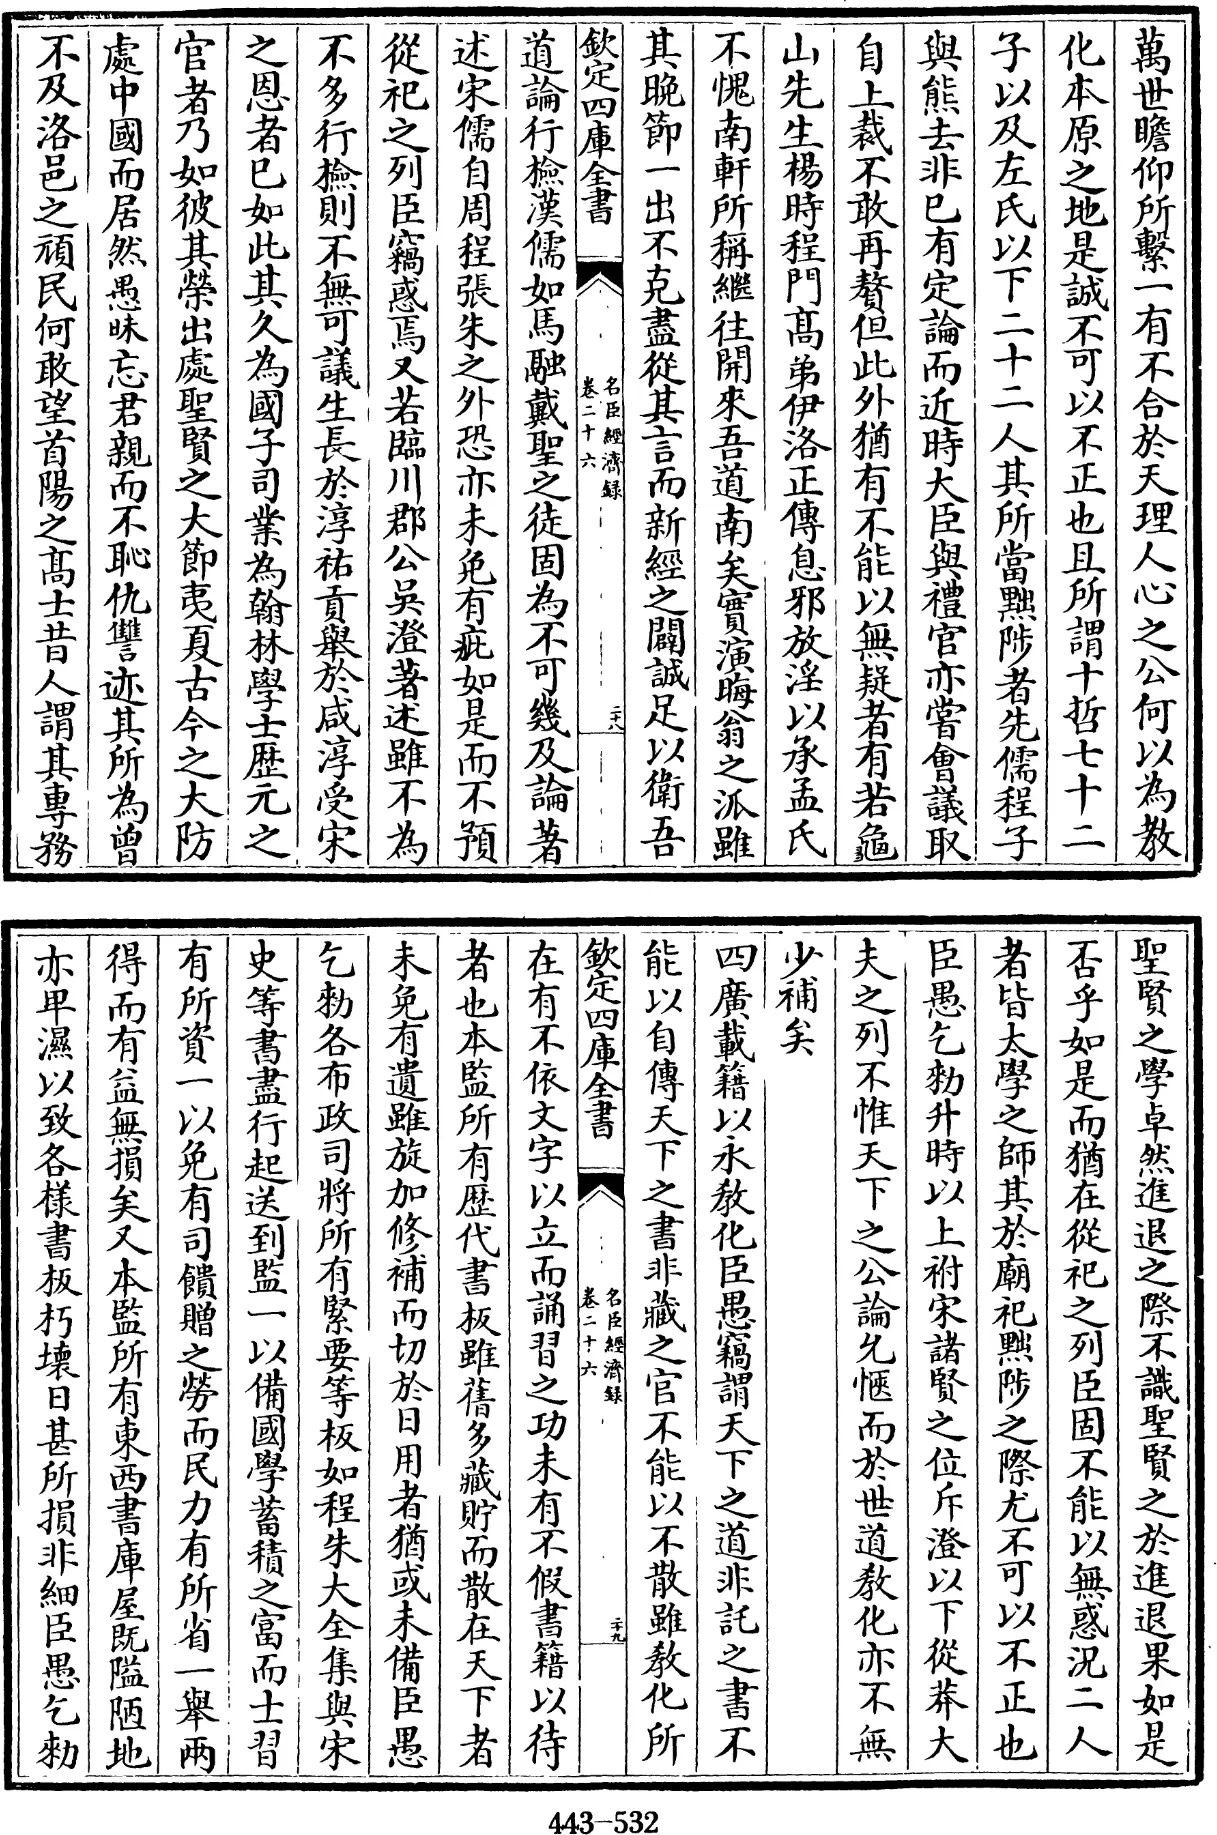 萬世瞻仰所繫一有不合於天理人心之公何以為教
化本原之地是誠不可以不正也且所謂十哲七十二
子以及左氏以下二十二人其所當黜陟者先儒程子
與熊去非已有定論而近時大臣與禮官亦嘗會議取
自上裁不敢再贅但此外猶有不能以無疑者有若龜
山先生楊時程門髙弟伊洛正傳息邪放淫以承孟氏
不愧南軒所稱繼往開來吾道南矣實演晦翁之派雖
其晚節一出不克盡從其言而新經之闢誠足以衛吾
欽定四庫全書
名臣經濟録
卷二十六
二十八
道論行檢漢儒如馬融戴聖之徒固為不可幾及論著
述宋儒自周程張朱之外恐亦未免有疵如是而不預
從祀之列臣竊惑焉又若臨川郡公吳澄著述雖不為
不多行檢則不無可議生長於淳祐貢舉於咸淳受宋
之恩者已如此其久為國子司業為翰林學士歴元之
官者乃如彼其榮出處聖賢之大節夷夏古今之大防
處中國而居然愚昧忘君親而不恥仇讐迹其所為曾
不及洛邑之頑民何敢望首陽之髙士昔人謂其專務
聖賢之學卓然進退之際不識聖賢之於進退果如是
否乎如是而猶在從祀之列臣固不能以無惑況二人
者皆太學之師其於廟祀黜陟之際尤不可以不正也
臣愚乞勅升時以上祔宋諸賢之位斥澄以下從莽大
夫之列不惟天下之公論允愜而於世道教化亦不無
少補矣
四廣載籍以永教化臣愚竊謂天下之道非託之書不
能以自傳天下之書非藏之官不能以不散雖教化所
欽定四庫全書
名臣經濟録
卷二十六
二十九
在有不依文字以立而誦習之功未有不假書籍以待
者也本監所有歴代書板雖舊多藏貯而散在天下者
未免有遺雖旋加修補而切於日用者猶或未備臣愚
乞勅各布政司將所有緊要等板如程朱大全集與宋
史等書盡行起送到監一以備國學蓄積之富而士習
有所資一以免有司饋贈之勞而民力有所省一舉兩
得而有益無損矣又本監所有東西書庫屋既隘陋地
亦卑濕以致各樣書板朽壞日甚所損非細臣愚乞勅
443-532